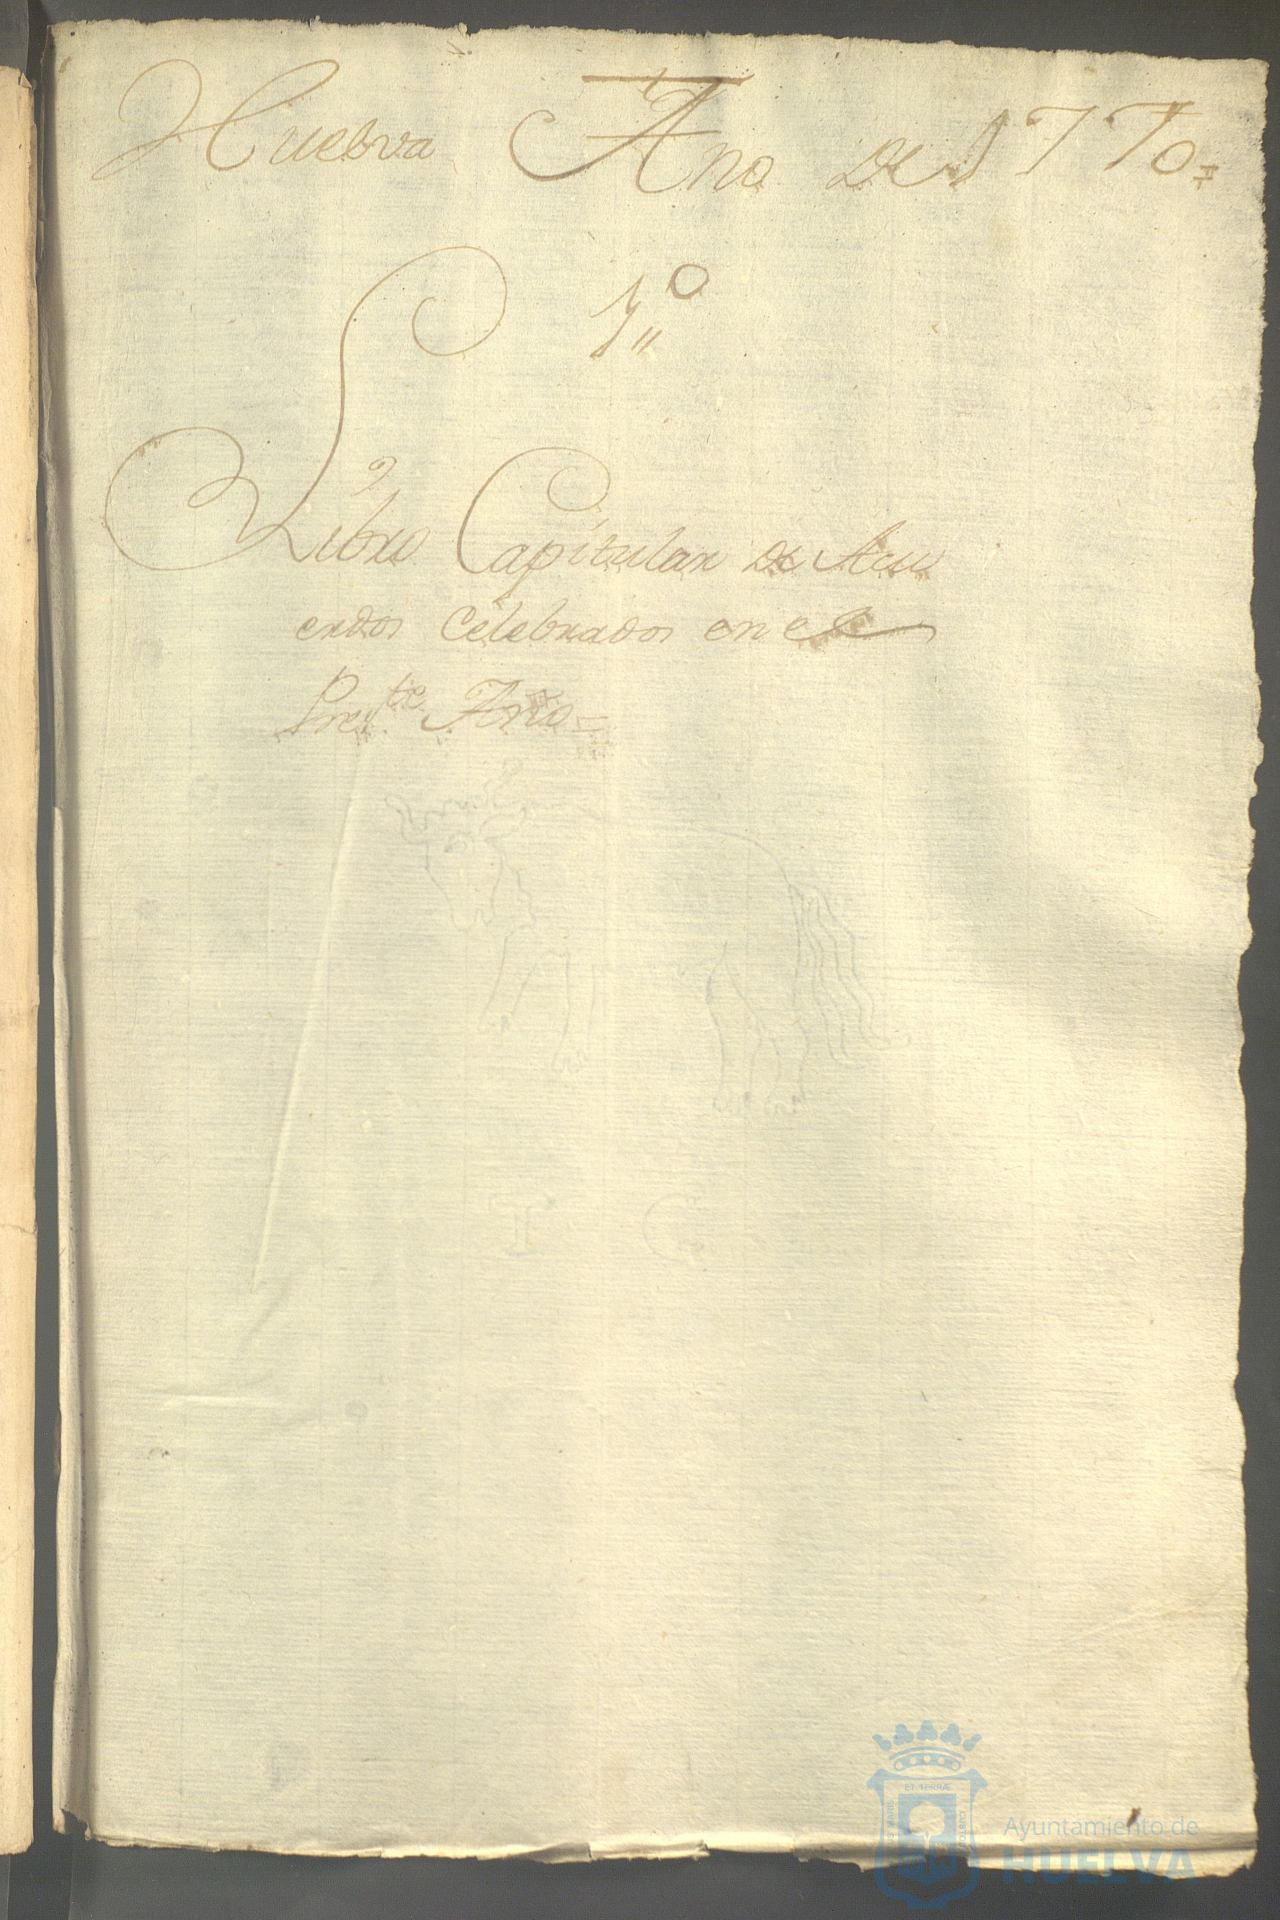 Huelva Año de 1770=
1º
Libro Capitular de Acu
erdos Celebrados en el
Preste Año=
T C
ET TERRÆ
Ayuntamiento de
HUELVA